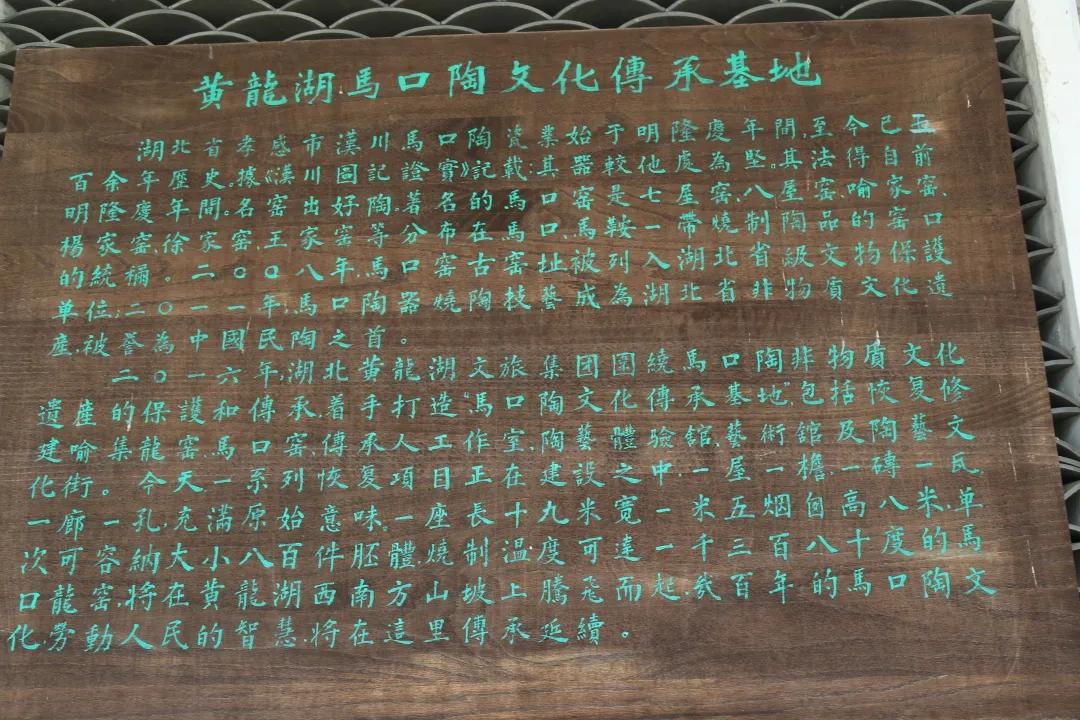 黄龍湖馬口陶文化傳承基地
湖北省孝感市漢川馬口陶瓷業始于明隆慶年間,至今已五
百余年歷史。據《漢川圖記證實》記載:其器較他處為堅。其法得自前
明隆慶年間。名窑出好陶。著名的馬口窑是七屋窑、八屋窑、喻家窑、
楊家窑、徐家窑、王家窑等分布在馬口、馬鞍一帶燒制陶品的窑口
的統稱。二〇〇八年,馬口窑古窑址被列入湖北省級文物保護
單位;二〇一一年,馬口陶器燒陶技藝成為湖北省非物質文化遺
産,被誉為中國民陶之首。
二〇一六年,湖北黄龍湖文旅集团圍繞馬口陶非物質文化
遺産的保護和傳承,着手打造“馬口陶文化傳承基地”,包括恢复修
建喻集龍窑、馬口窑、傳承人工作室、陶藝體验舘、藝術舘及陶藝文
化街。今天,一系列恢复項目正在建設之中,一屋一檐,一磚一瓦,
一廊一孔,充滿原始意味,一座長十九米寬一米五烟囱高八米,单
次可容納大小八百件胚體,燒制温度可達一千三百八十度的馬
口龍窑,将在黄龍湖西南方山坡上騰飛而起,幾百年的馬口陶文
化,勞動人民的智慧,将在這里傳承延續。